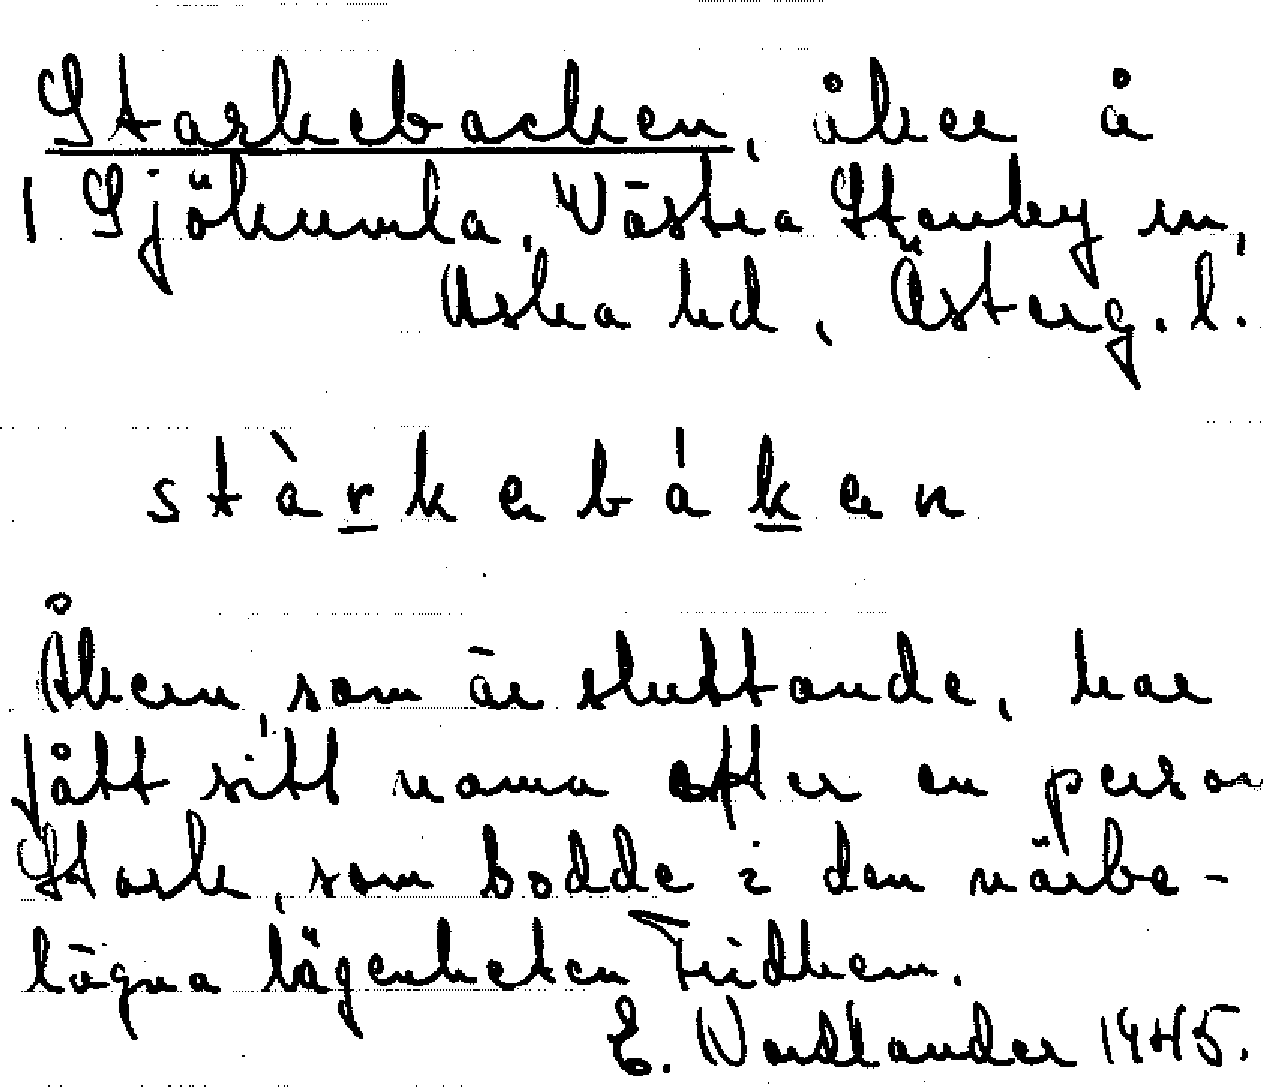 Starkebacken, åker å
1 Sjökumla, Västra Stenby sn,
Aska hd, Österg. l.
stàrkebáken
Åkern, som är sluttande, har
fått sitt namn efter en person
Stark, som bodde i den närbe-
lägna lägenheten Fridhem.
E. Vadslander 1945.